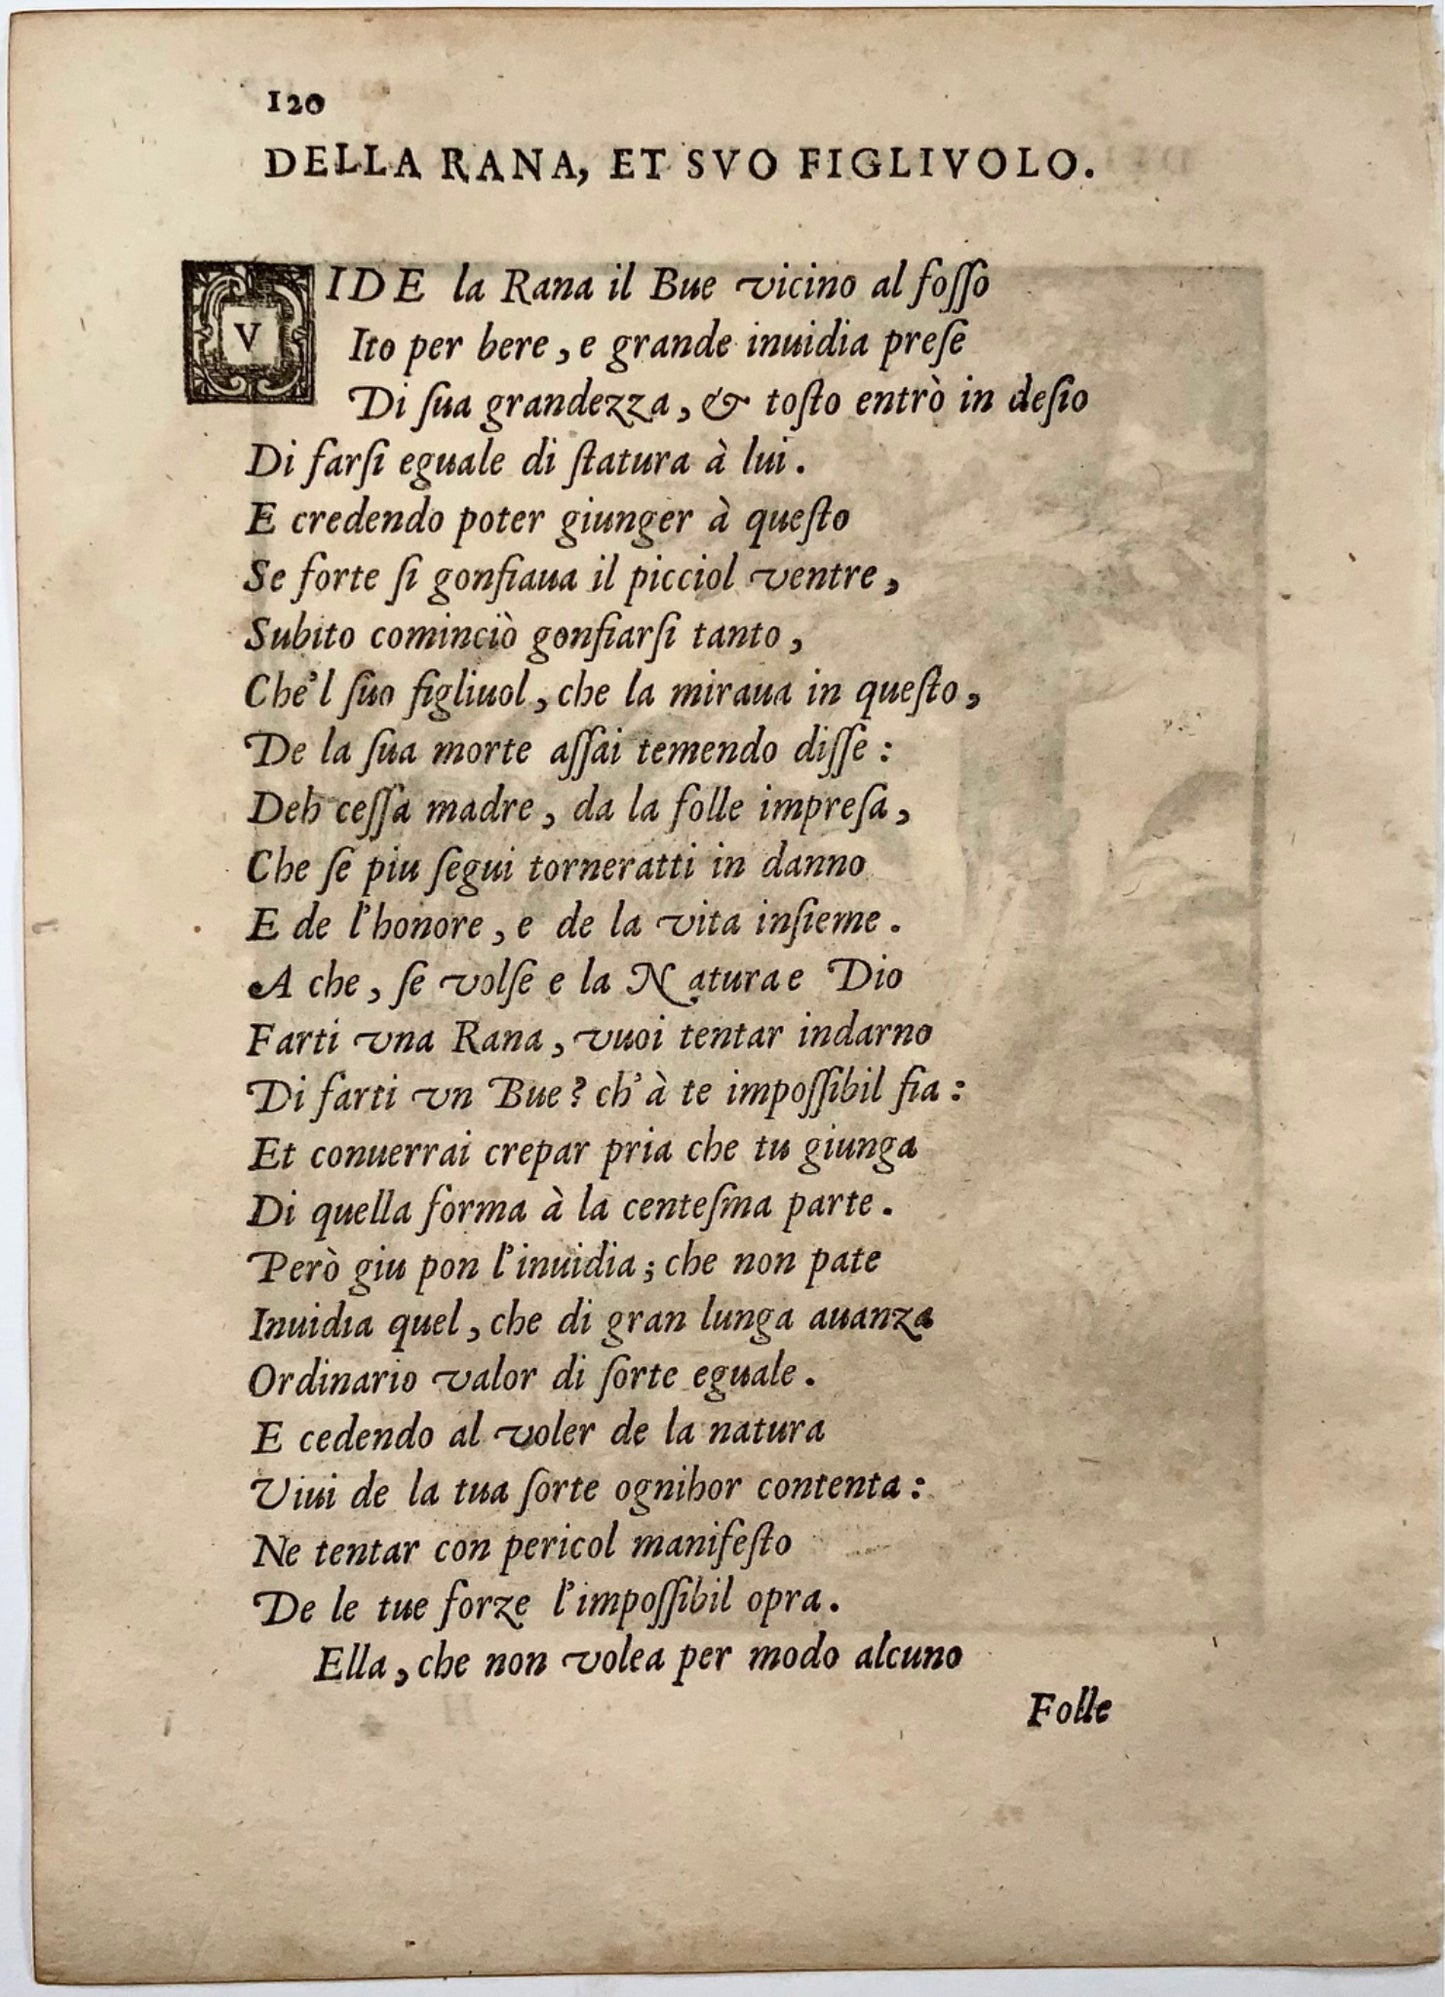 120
DELLA RANA, ET SVO FIGLIVOLO.
VIDE la Rana il Bue vicino al foſſo
Ito per bere, e grande inuidia preſe
Di ſua grandezza, & toſto entrò in deſio
Di farſi eguale di ſtatura à lui.
E credendo poter giunger à queſto
Se forte ſi gonfiaua il picciol ventre,
Subito cominciò gonfiarſi tanto,
Che'l ſuo figliuol, che la miraua in queſto,
De la ſua morte aſſai temendo diſſe:
Deh ceſſa madre, da la folle impreſa,
Che ſe piu ſegui torneratti in danno
E de l'honore, e de la vita inſieme.
A che, ſe volſe e la Natura e Dio
Farti vna Rana, vuoi tentar indarno
Di farti vn Bue? ch'à te impoſſibil fia:
Et conuerrai crepar pria che tu giunga
Di quella forma à la centeſma parte.
Però giu pon l'inuidia; che non pate
Inuidia quel, che di gran lunga auanza
Ordinario valor di ſorte eguale.
E cedendo al voler de la natura
Viui de la tua ſorte ognihor contenta:
Ne tentar con pericol manifeſto
De le tue forze l'impoſſibil opra.
Ella, che non volea per modo alcuno
Folle